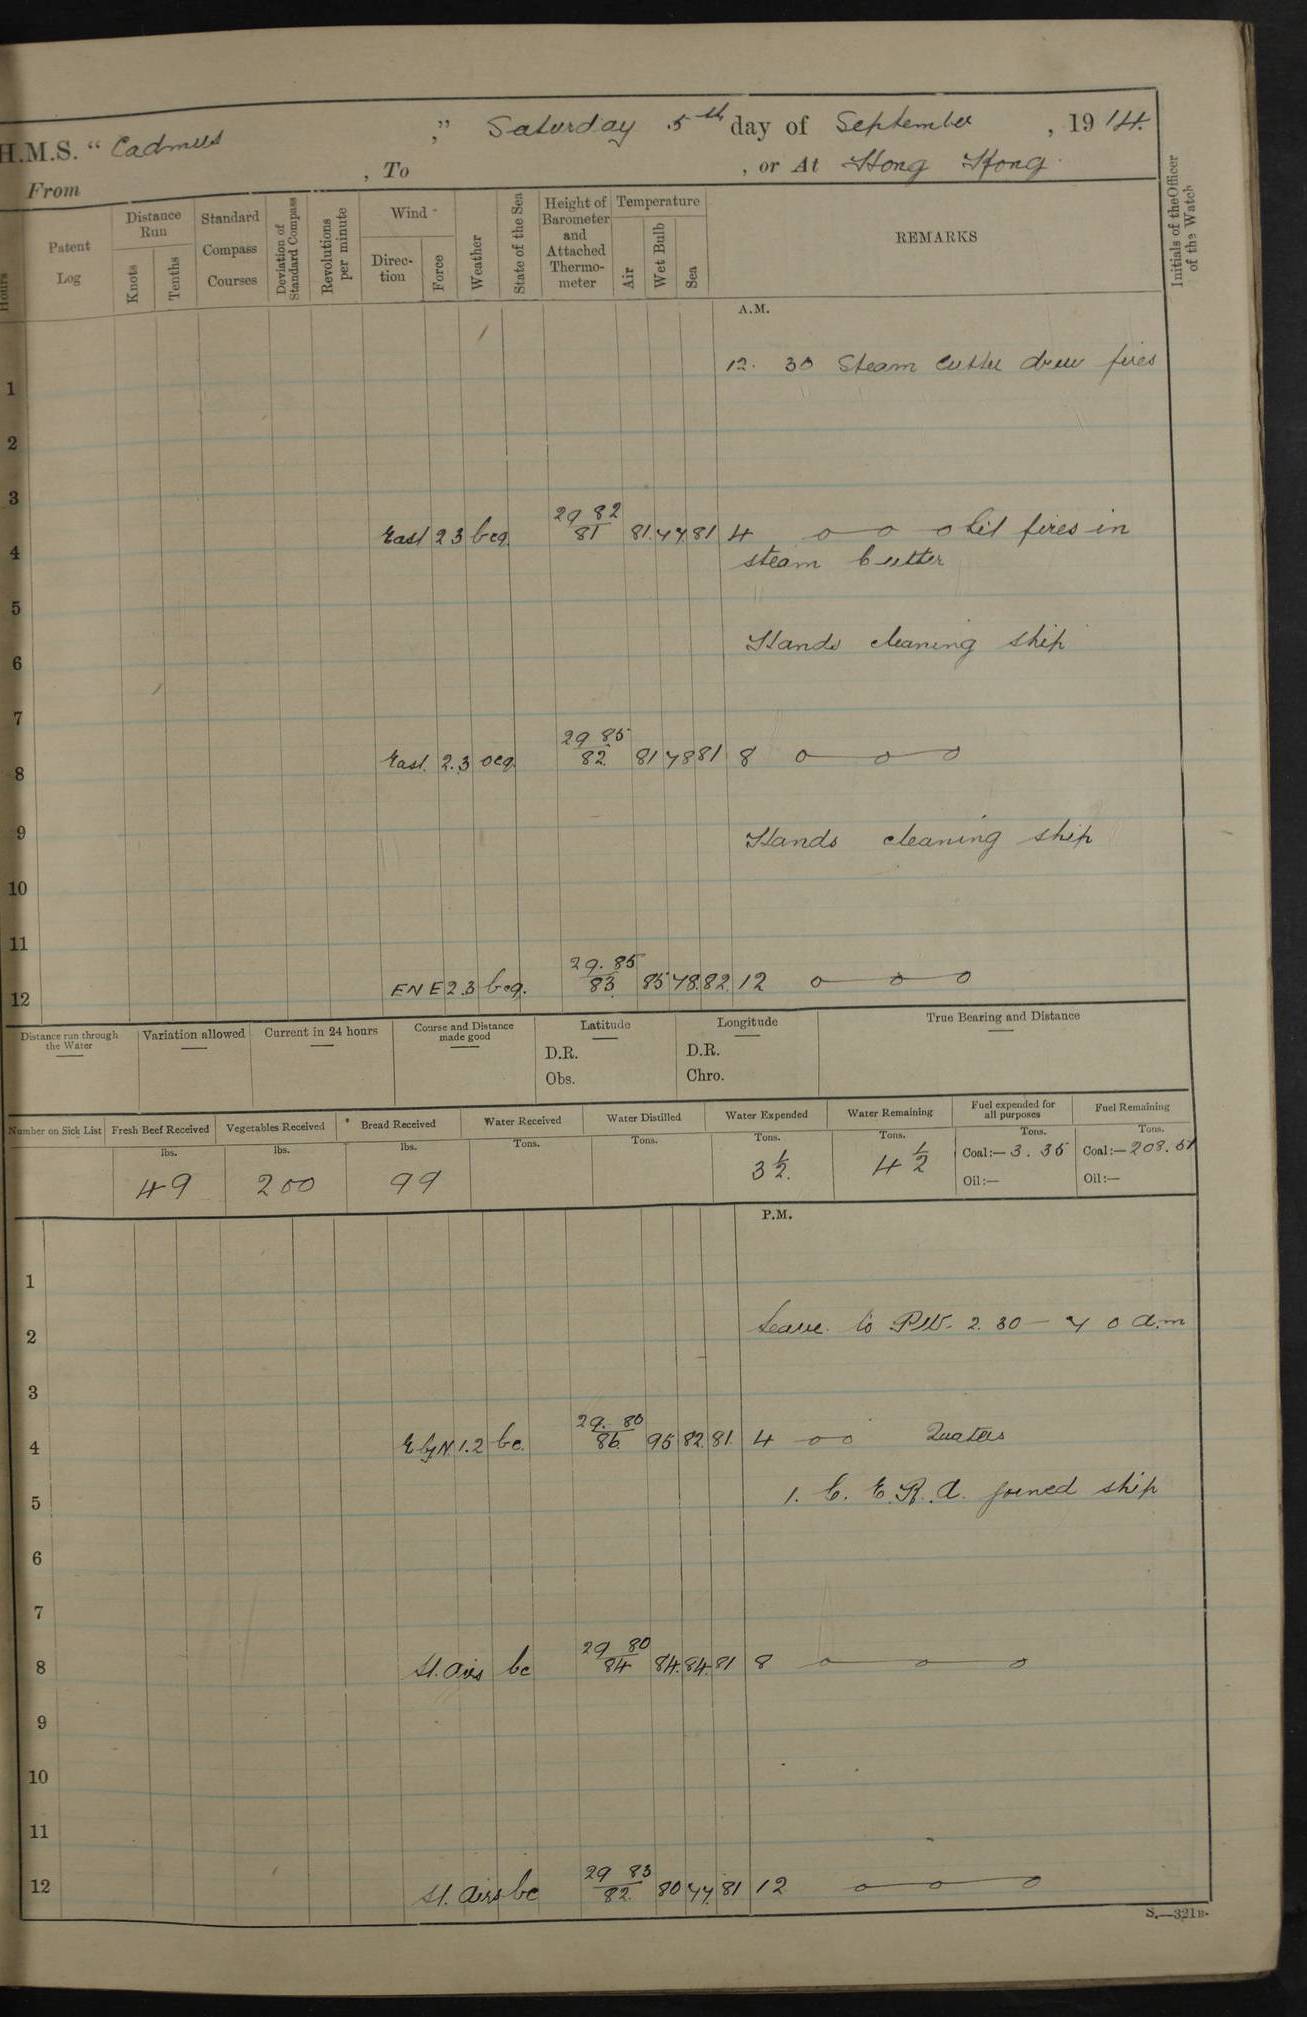 H.M.S. "Cadmus ," Saturday 5th day of September , 1914.
From , To , or At Hong Kong.
Hours
Patent Log
Distance Run
Knots
Tenths
Standard Compass Courses
Deviation of Standard Compass
Revolutions per minute
Wind
Direction
Force
Weather
State of the Sea
Height of Barometer and Attached Thermometer
Temperature
Air
Wet Bulb
Sea
REMARKS
Initials of the Officer of the Watch
A.M.
12. 30 Steam Cutter drew fires
1
2
3
29 82
4 East 2 3 bcq. 81 81. 77 81 4 o—o—o Lit fires in
steam Cutter
5
Hands cleaning ship
6
7
29 85
8 East. 2.3 ocq. 82. 81 78 81 8 o—o—o
9 Hands cleaning ship
10
11
29. 85
12 ENE 2.3 bcq. 83. 85 78. 82. 12 o—o—o
Distance run through the Water
Variation allowed
Current in 24 hours
Course and Distance made good
Latitude
D.R.
Obs.
Longitude
D.R.
Chro.
True Bearing and Distance
Number on Sick List
Fresh Beef Received
lbs.
49
Vegetables Received
lbs.
200
Bread Received
lbs.
99
Water Received
Tons.
Water Distilled
Tons.
Water Expended
Tons.
3½.
Water Remaining
Tons.
4½
Fuel expended for all purposes
Tons.
Coal:— 3. 35
Oil:—
Fuel Remaining
Tons.
Coal:— 208. 51
Oil:—
P.M.
1
2 Leave to P.W. 2. 30 — 7 0 a.m
3
29. 80
4 E by N. 1. 2 bc. 86. 95 82. 81. 4 o—o Quaters
5 1. C. E. R. A. joined ship
6
7
29 80
8 Lt. airs bc 84 84. 84. 81 8 o—o—o
9
10
11
29 83
12 Lt. airs bc 82. 80 77. 81 12 o—o—o
S.—321B.